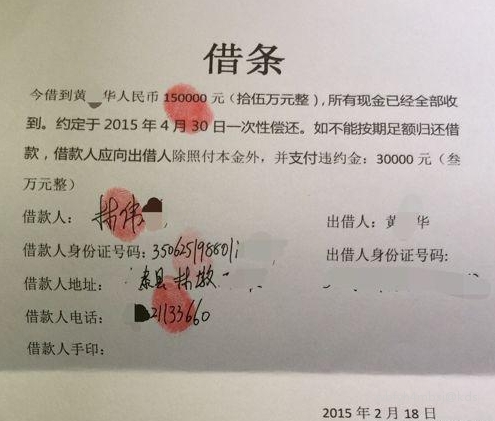 借条
今借到黄 华人民币 150000 元（拾伍万元整），所有现金已经全部收
到。约定于 2015 年 4 月 30 日一次性偿还。如不能按期足额归还借
款，借款人应向出借人除照付本金外，并支付违约金：30000 元（叁
万元整）
借款人：林伟 出借人：黄 华
借款人身份证号码：35062519880 出借人身份证号码:
借款人地址： 泰县林墩
借款人电话： 21133660
借款人手印：
2015 年 2 月 18 日